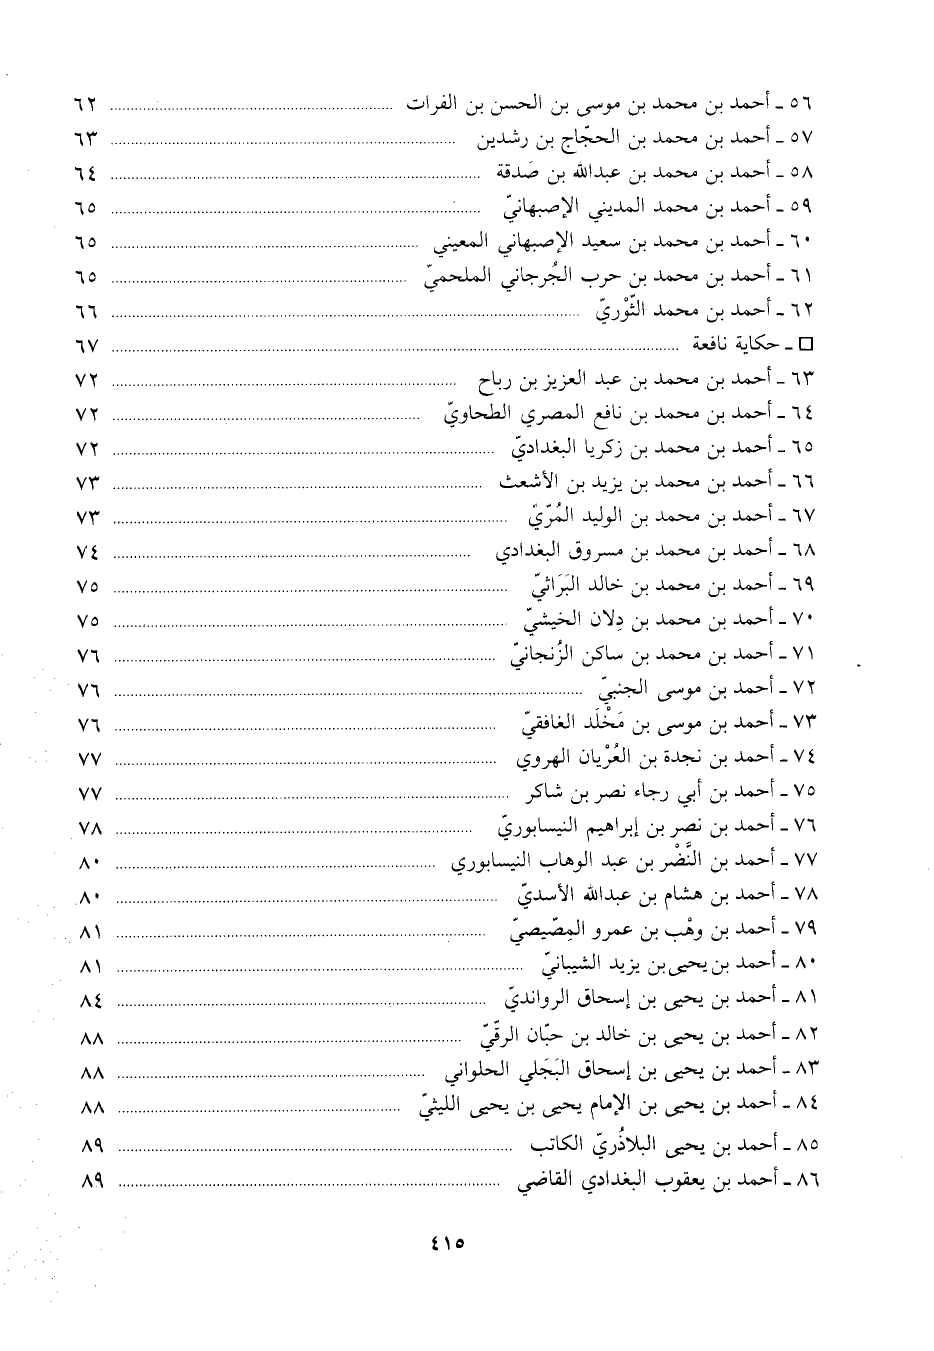 ٥٦ ـ أحمد بن محمد بن موسى بن الحسن بن الفرات ........ ٦٢
٥٧ ـ أحمد بن محمد بن الحجّاج بن رشدين ........ ٦٣
٥٨ ـ أحمد بن محمد بن عبدالله بن صَدقة ........ ٦٤
٥٩ ـ أحمد بن محمد المديني الإصبهانيّ ........ ٦٥
٦٠ ـ أحمد بن محمد بن سعيد الإصبهاني المعيني ........ ٦٥
٦١ ـ أحمد بن محمد بن حرب الجُرجاني الملحميّ ........ ٦٥
٦٢ ـ أحمد بن محمد الثَّوْريّ ........ ٦٦
□ ـ حكاية نافعة ........ ٦٧
٦٣ ـ أحمد بن محمد بن عبد العزيز بن رباح ........ ٧٢
٦٤ ـ أحمد بن محمد بن نافع المصري الطحاويّ ........ ٧٢
٦٥ ـ أحمد بن محمد بن زكريا البغداديّ ........ ٧٢
٦٦ ـ أحمد بن محمد بن يزيد بن الأشعث ........ ٧٣
٦٧ ـ أحمد بن محمد بن الوليد المُرّيّ ........ ٧٣
٦٨ ـ أحمد بن محمد بن مسروق البغدادي ........ ٧٤
٦٩ ـ أحمد بن محمد بن خالد البَرَاثيّ ........ ٧٥
٧٠ ـ أحمد بن محمد بن دِلان الخيشيّ ........ ٧٥
٧١ ـ أحمد بن محمد بن ساكن الزُنجانيّ ........ ٧٦
٧٢ ـ أحمد بن موسى الجنبيّ ........ ٧٦
٧٣ ـ أحمد بن موسى بن مَخْلَد الغافقيّ ........ ٧٦
٧٤ ـ أحمد بن نجدة بن العُرْيان الهروي ........ ٧٧
٧٥ ـ أحمد بن أبي رجاء نصر بن شاكر ........ ٧٧
٧٦ ـ أحمد بن نصر بن إبراهيم النيسابوريّ ........ ٧٨
٧٧ ـ أحمد بن النَّضْر بن عبد الوهاب النيسابوري ........ ٨٠
٧٨ ـ أحمد بن هشام بن عبدالله الأسديّ ........ ٨٠
٧٩ ـ أحمد بن وهْب بن عمرو المِصّيصيّ ........ ٨١
٨٠ ـ أحمد بن يحيى بن يزيد الشيبانيّ ........ ٨١
٨١ ـ أحمد بن يحيى بن إسحاق الرونديّ ........ ٨٤
٨٢ ـ أحمد بن يحيى بن خالد بن حبّان الرقّيّ ........ ٨٨
٨٣ ـ أحمد بن يحيى بن إسحاق البَجَلي الحلواني ........ ٨٨
٨٤ ـ أحمد بن يحيى بن الإمام يحيى بن يحيى الليثيّ ........ ٨٨
٨٥ ـ أحمد بن يحيى البلاذُريّ الكاتب ........ ٨٩
٨٦ ـ أحمد بن يعقوب البغدادي القاضي ........ ٨٩
٤١٥